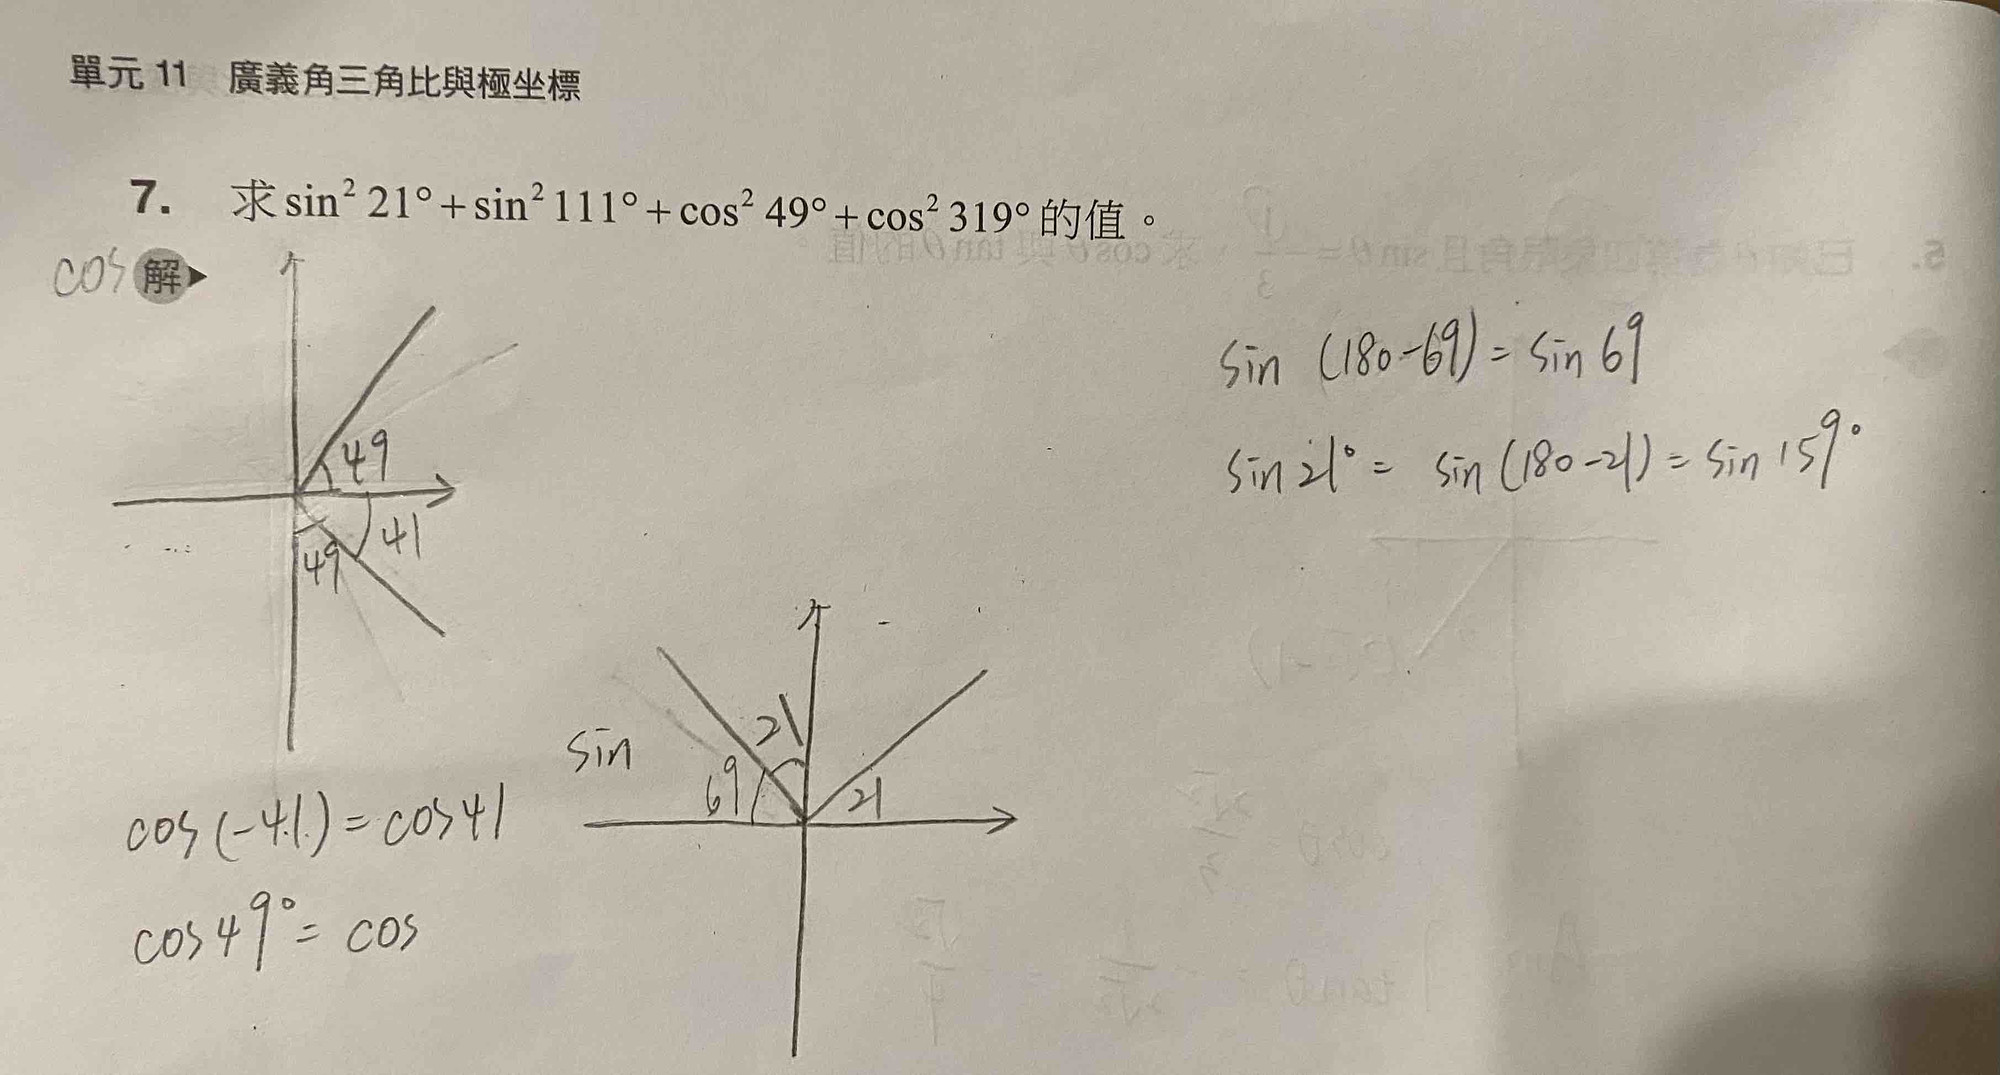 單元 11 廣義角三角比與極坐標
7. 求 sin² 21° + sin² 111° + cos² 49° + cos² 319° 的值。
cos 解
sin (180-69) = sin 69
sin 21° = sin (180-21) = sin 159°
49
41
49
21
sin
69
21
cos (-41) = cos 41
cos 49° = cos